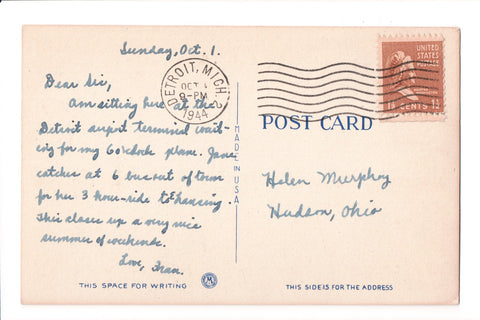 Sunday, Oct. 1.
Dear Sis,
Am sitting here at the
Detroit airport terminal wait-
ing for my 6 o'clock plane. Jane
catches at 6 bus out of town
for her 3 hour-ride to Lansing.
This closes up a very nice
summer of weekends.
Love, Fran.
THIS SPACE FOR WRITING
MADE IN USA
DETROIT, MICH.
OCT 1
8-PM
1944
UNITED
STATES
POSTAGE
1½ CENTS 1½
POST CARD
Helen Murphy
Hudson, Ohio
THIS SIDE IS FOR THE ADDRESS